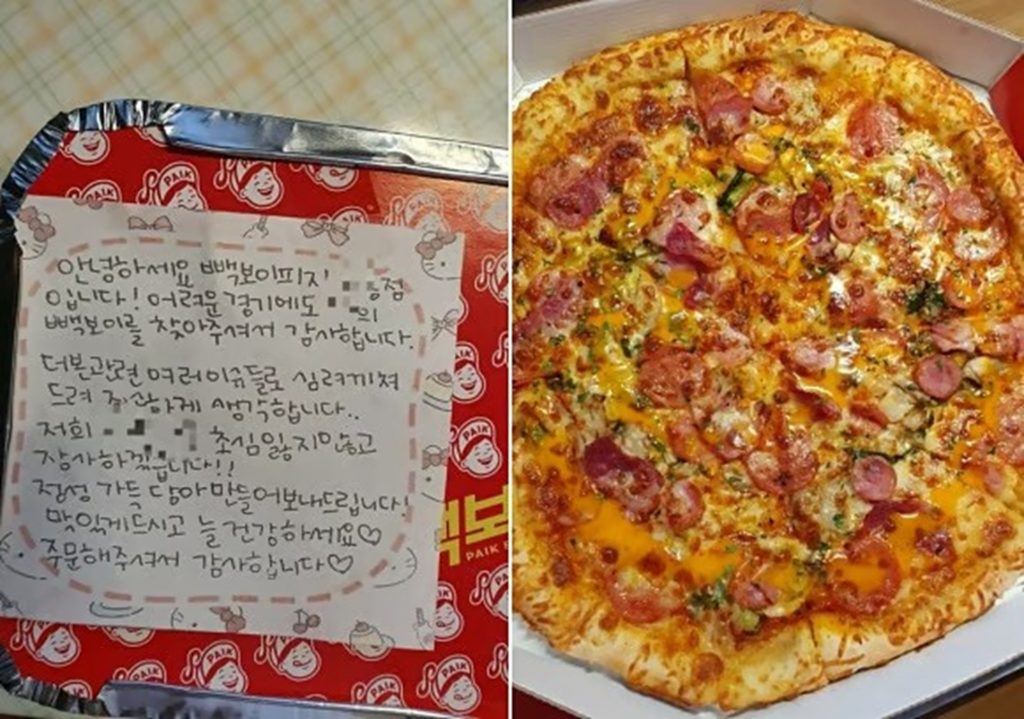 안녕하세요 빽보이피자 점
입니다! 어려운 경기에도 의
빽보이를 찾아주셔서 감사합니다.
더본관련 여러이슈들로 심려끼쳐
드려 죄송하게 생각합니다..
저희 초심잃지않고
장사하겠습니다!!
정성 가득 담아 만들어보내드립니다!
맛있게드시고 늘 건강하세요♡
주문해주셔서 감사합니다♡
PAIK
PAIK
PAIK
PAIK
PAIK
PAIK